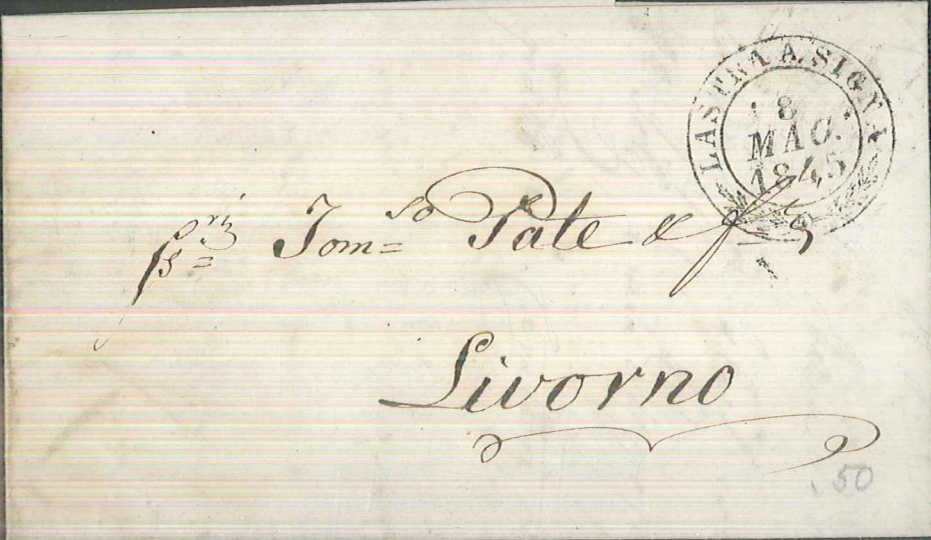 LASTRA A SIGNA
8
MAG.
1845
Tom=so Pate & f=i
Livorno
.50